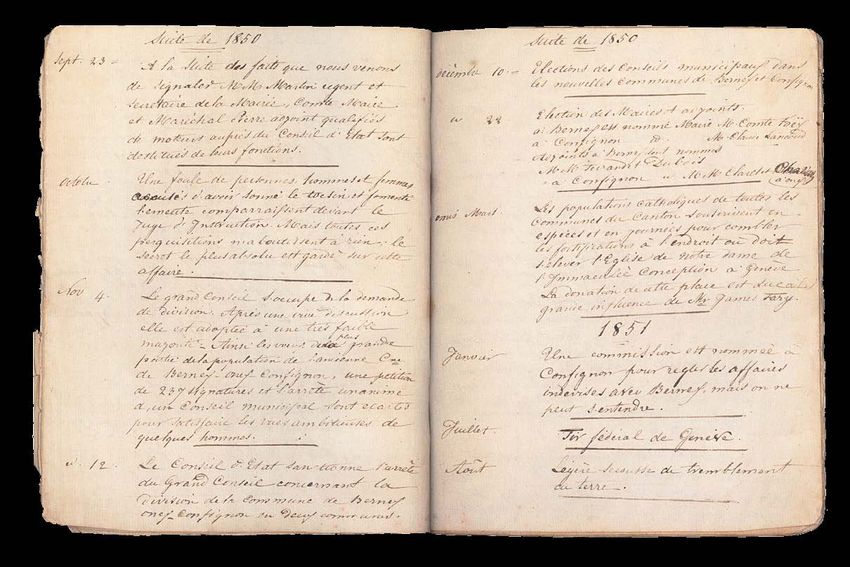 Suite de 1850
Sept. 23 = A la Suite des faits que nous venons
de signaler M.M. Martin regent et
Secretaire de la Mairie, Comte Maire
et Maréchal Pierre adjoint qualifiés
de moteurs auprès du Conseil d'Etat sont
destitués de leurs fonctions.
Octobre Une foule de personnes hommes et femmes
accusés d'avoir sonné le tocsin et fomenté
comparraissent devant le
Juge d'Instructions. Mais toutes ces
perquisitions n'aboutissent à rien : le
secret le plus absolu est gardé sur cette
affaire.
Nov 4. Le grand Conseil s'occupe de la demande
de division. Après une vive discussion
elle est adoptée à une très faible
majorité. Ainsi les voeux de la plus grande
partie de la population de l'ancienne Cne
de Bernex onex Confignon, une petition
de 237 signatures et l'arrêté unanime
d'un Conseil municipal sont écartés
pour satisfaire les vues ambitieuses de
quelques hommes.
id. 12. Le Conseil d'Etat sanctionne l'arrêté
du Grand Conseil concernant la
division de la Commune de Bernex
onex-Confignon en deux communes.
Suite de 1850
décembre 10 = Elections des Conseils municipaux dans
les nouvelles communes de Bernex et Confignon
id 22 Election des Maires et adjoints.
à Bernex est nommé Maire M. Comte
à Confignon M.
adjoints à Bernex sont nommés
M.M. Dubois
à Confignon id M.M.
(d'onex)
Mars. Les populations catholiques de toutes les
Communes du Canton souscrivent en
espèces et en journées pour combler
les fortifications à l'endroit où doit
s'élever l'Eglise de notre dame de
l'Immaculée Conception à Genève
La donation de cette place est due à la
grande influence de Mr James Fazy.
1851
Janvier Une commission est nommée à
Confignon pour régler les affaires
indivises avec Bernex, mais on ne
peut s'entendre.
Juillet. Tir fédéral de Genève.
Août Légère secousse de tremblement
de terre.